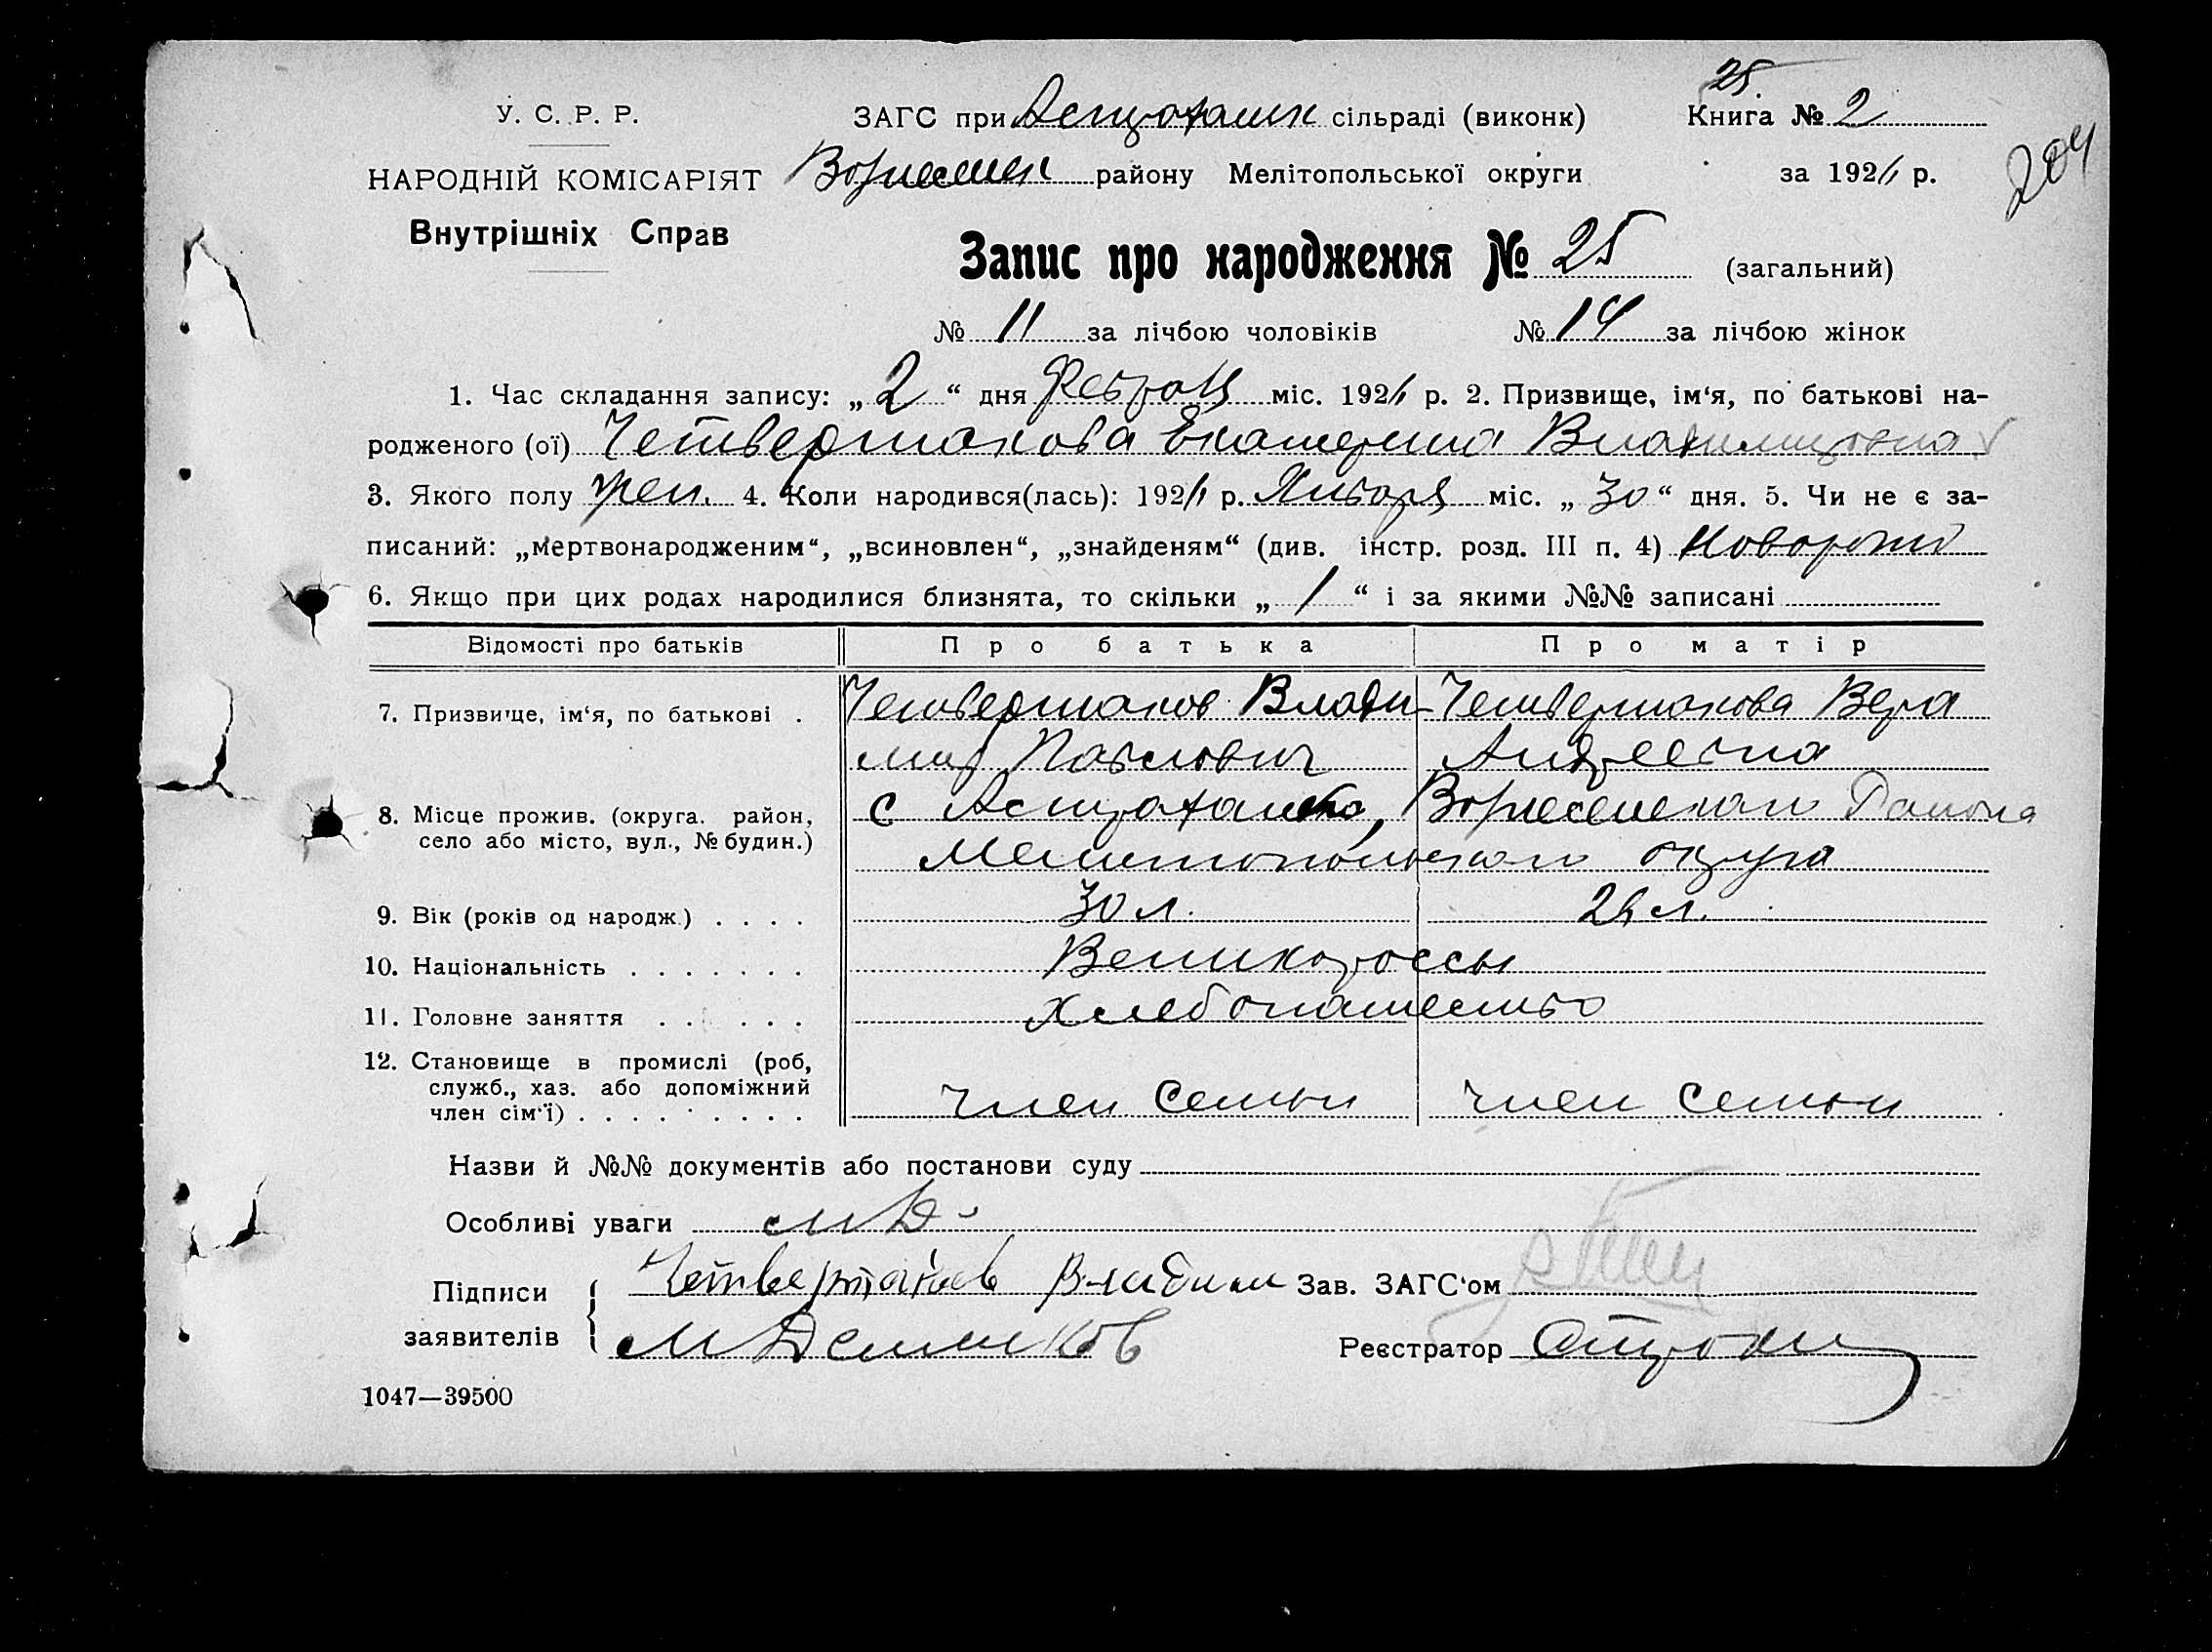 25.
У. С. Р. Р. ЗАГС при Астрахан сільраді (виконк) Книга № 2
204
НАРОДНІЙ КОМІСАРІЯТ Вознесен району Мелітопольської округи за 192 р.
Внутрішніх Справ
Запис про народження № 25 (загальний)
№ 11 за лічбою чоловіків № 14 за лічбою жінок
1. Час складання запису: „ 2 “ дня Февраля міс. 192 р. 2. Призвище, ім‘я, по батькові на-
родженого (ої) Четвертакова Екатерина Владимировна
3. Якого полу жен. 4. Коли народився(лась): 192 р. Января міс. „ 30 “ дня. 5. Чи не є за-
писаний: „мертвонародженим“, „всиновлен“, „знайденям“ (див. інстр. розд. III п. 4)Новорожд
6. Якщо при цих родах народилися близнята, то скільки „ 1 “ і за якими №№ записані
Відомості про батьків Про батька Про матір
7. Призвище, ім‘я, по батькові . Четвертаков Влади- Четвертакова Вера
мир Павлович Андреевна
8. Місце прожив. (округа. район, с Астраханка, Вознесенского Района
село або місто, вул., № будин.) Мелитопольского округа
9. Вік (років од народж.) . . . . 30 л. 26 л.
10. Національність . . . . . . . Великороссы
11. Головне заняття . . . . . . Хлебопашество
12. Становище в промислі (роб,
служб., хаз. або допоміжний
член сім‘ї) . . . . . . . . . член семьи член семьи
Назви й №№ документів або постанови суду
Особливі уваги МД
Підписи Четвертаков Владим Зав. ЗАГС‘ом
заявителів М Демиков Реєстратор
1047—39500